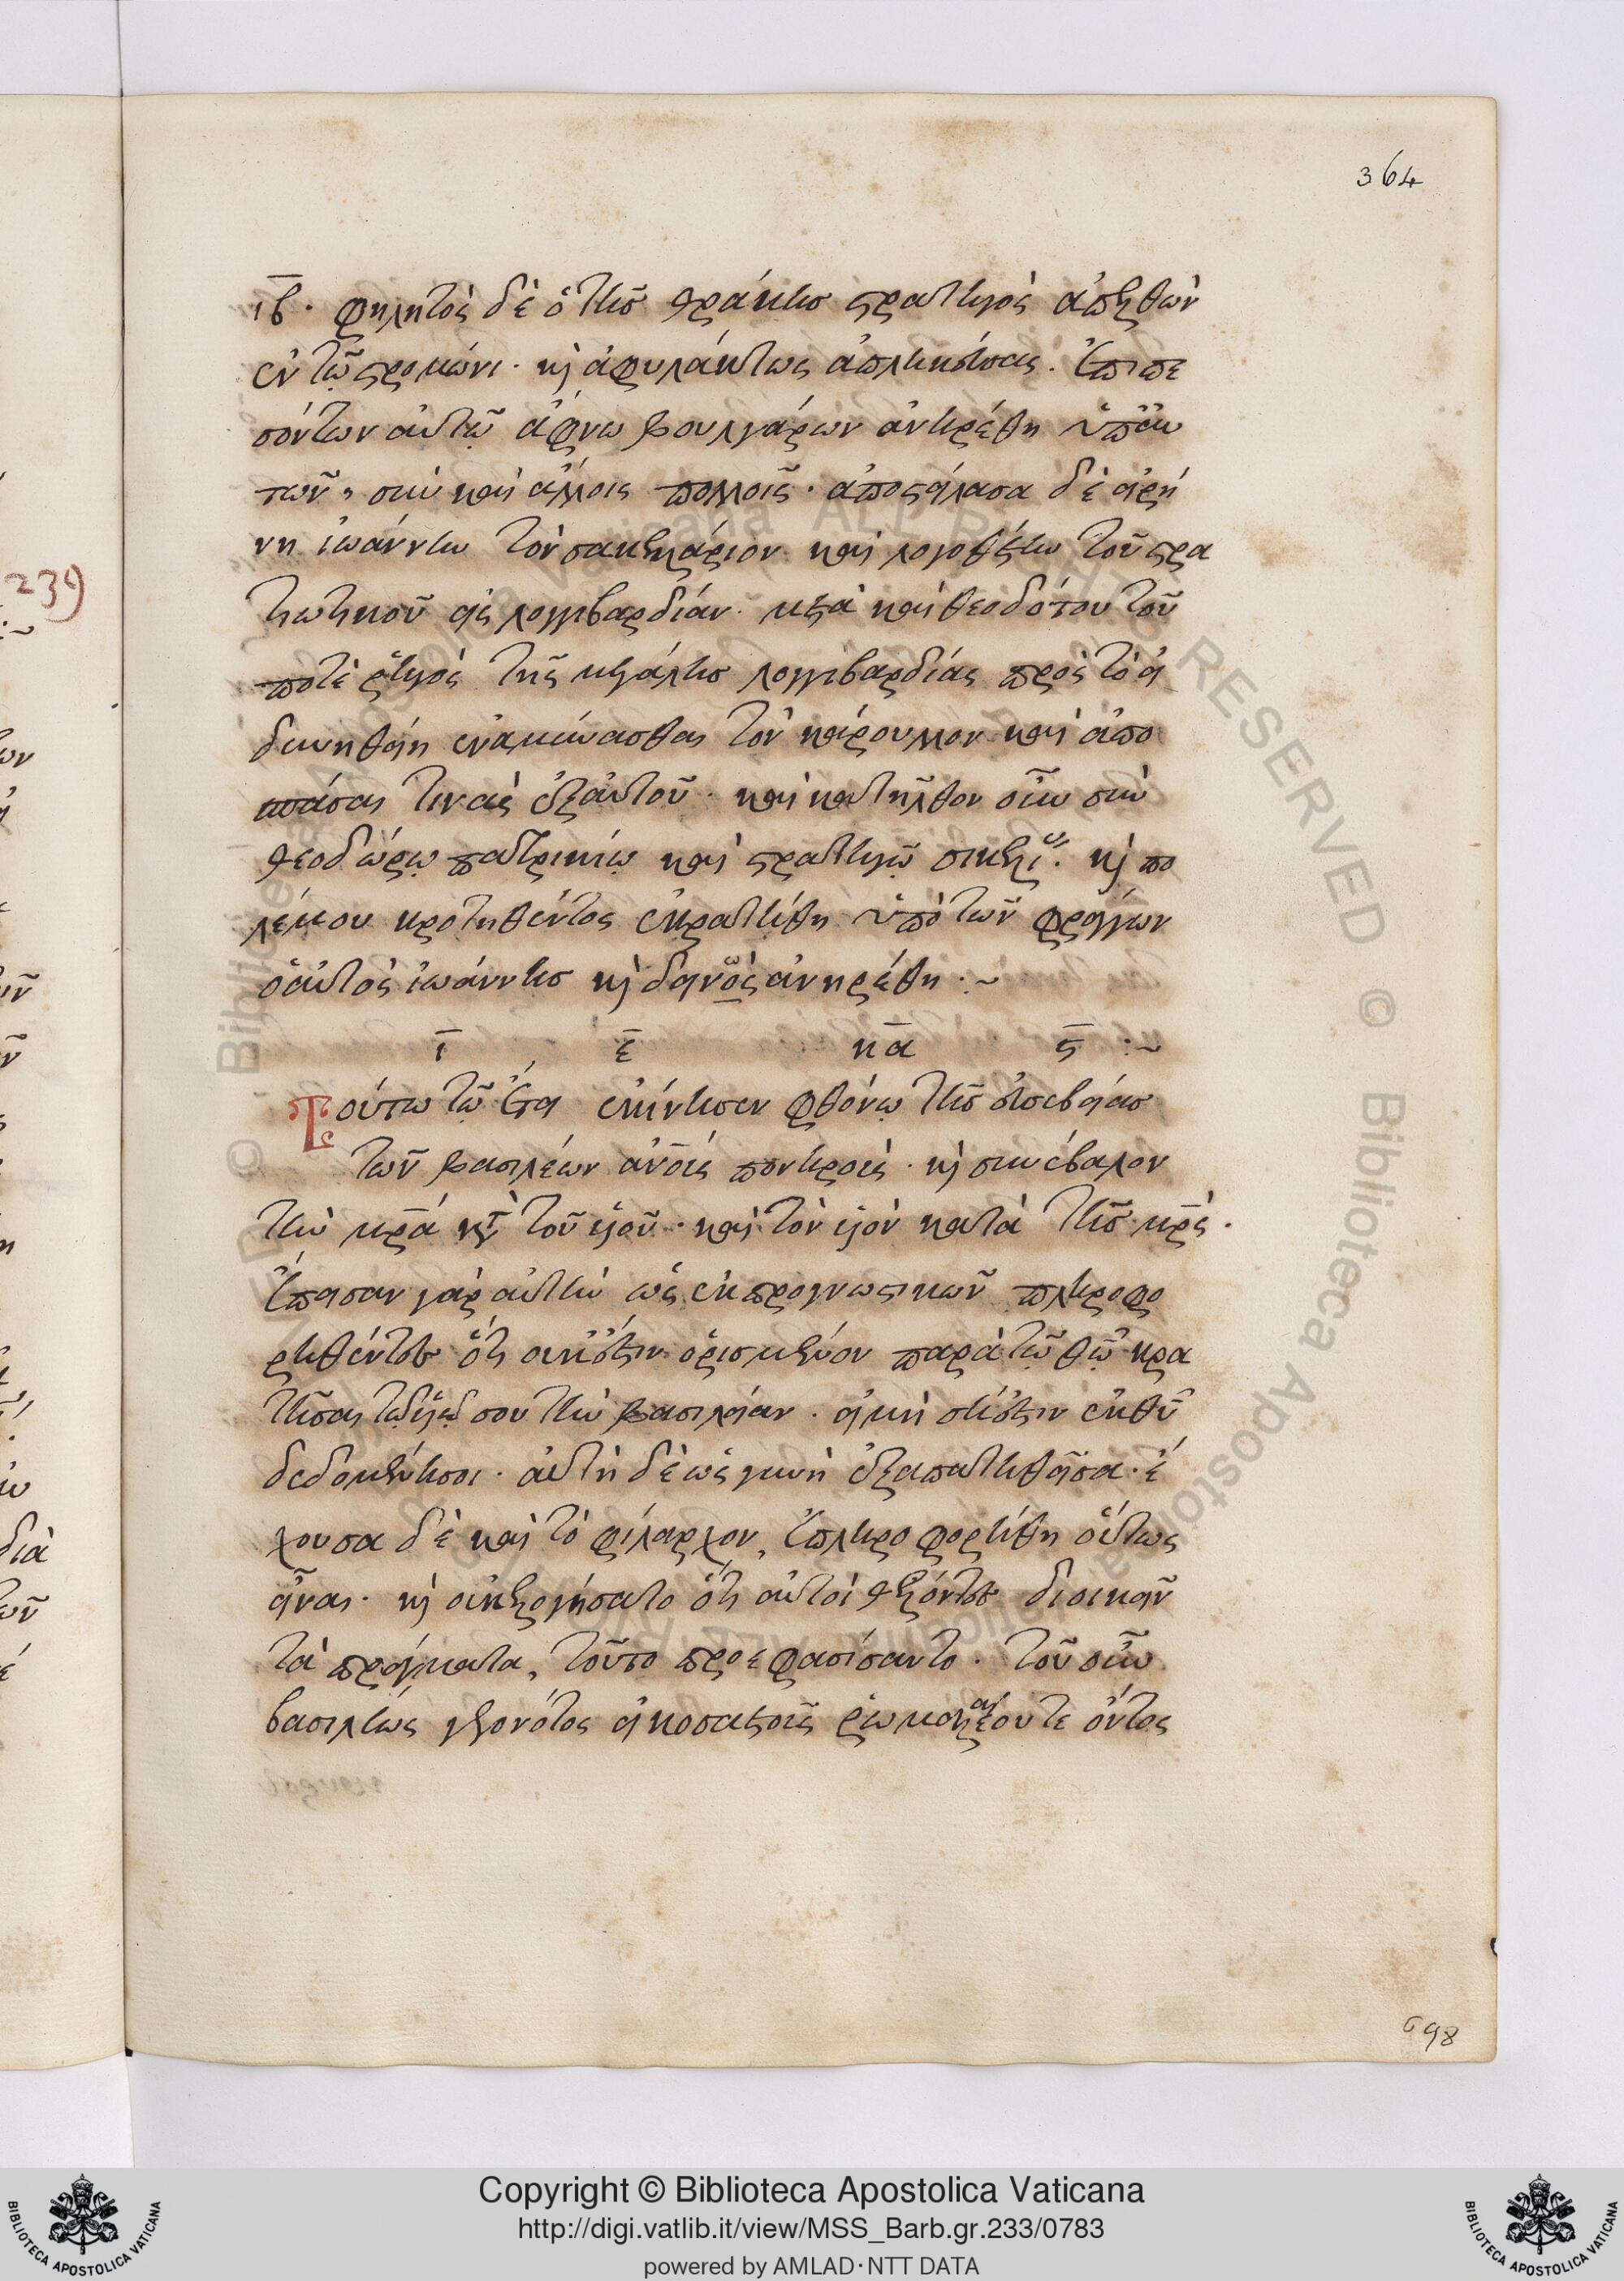 364
ιβ. φηλητὸς δὲ ὁ τῆς θράκησ στρατηγὸς ἀπελθὼν
ἐν τῷ στρυμῶνι. κὶ ἀφυλάκτως ἀπληκεύσας. ἐπιπε
σόντων αὐτῷ ἄφνω βουλγάρων ἀνηρέθη ὑπ' αὐ
τῶν, σὺν καὶ ἄλλοις πολλοῖς. ἀποστείλασα δὲ εἰρή
νη ἰωάννην τὸν σακελλάριον καὶ λογοθέτην τοῦ στρα
τιωτικοῦ εἰς λογγιβαρδίαν. μετὰ καὶ θεοδότου τοῦ
ποτὲ ῥηγὸς τῆς μεγάλησ λογγιβαρδίας πρὸς τὸ εἰ
δυνηθείη ἐναμύνασθαι τὸν κάρουλλον καὶ ἀπο
σπάσαι τινας ἐξ αὐτοῦ. καὶ κατῆλθον οὖν σὺν
θεοδώρῳ πατρικίῳ καὶ στρατηγῷ σικελί. κὶ πο
λέμου κροτηθέντος ἐκρατήθη ὑπὸ τῶν φράγγων
ὁ αὐτὸς ἰωάννησ κὶ δεινῶς ἀνηρέθη. :~
ι ε κα ς :~
Τούτω τῷ ἔτει ἐκίνησεν φθόνῳ τῆς εὐσεβείασ
τῶν βασιλέων ἀνοις πονηροὺς. κὶ συνέβαλον
τὴν μρα κτ τοῦ υἱοῦ. καὶ τὸν υἱὸν κατὰ τῆς μρς.
ἔπεισαν γὰρ αὐτὴν ὡς ἐκ προγνωστικῶν πληροφο
ρηθέντες ὅτι οὐκ ἔστιν ὁρισμένον παρὰ τῷ θῷ κρα
τῆσαι τῷ υἱῷ σου τὴν βασιλείαν. εἰ μὴ σή ἐστιν ἐκ θυ
δεδομένη σοι. αὐτὴ δὲ ὡς γυνὴ ἐξαπατηθεῖσα. ἔ
χουσα δὲ καὶ τὸ φίλαρχον, ἐπληροφορήθη οὕτως
εἶναι. κὶ οὐκ ἐλογήσατο ὅτι αὐτοὶ θέλοντες διοικεῖν
τὰ πράγματα, τοῦτο προεφασίσαντο. τοῦ οὖν
βασιλέως γεγονότος εἰκοσαετοῦς ῥωμαλαιξέου τε ὄντος
698
239
Copyright © Biblioteca Apostolica Vaticana
http://digi.vatlib.it/view/MSS_Barb.gr.233/0783
powered by AMLAD·NTT DATA